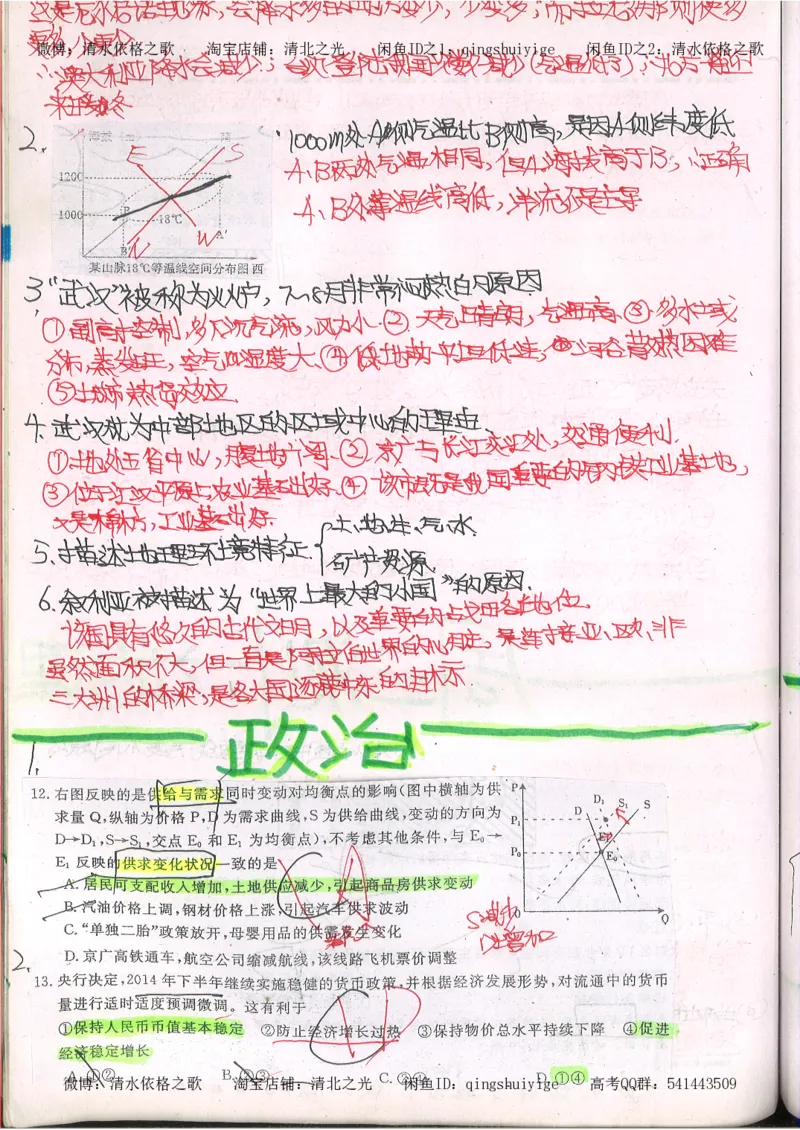 微博：清水依格之歌 淘宝店铺：清北之光 闲鱼ID之1：qingshuiyige 闲鱼ID之2：清水依格之歌
2.
1000m处A侧气温比B侧高，是因A侧纬度低
A、B两处气温相同，但A海拔高于B，正确
海拔
1200
1000
B
18℃
B'
A'
E
S
N
W
某山脉18℃等温线空间分布图 西
3. "武汉"被称为火炉，7~8月非常闷热的原因
①副高控制，多下沉气流，风力小.②天气晴朗，气温高.③多水域
分布，蒸发旺，空气湿度大.④低地势平坦低洼，河谷散热困难
⑤城市热岛效应.
4. 武汉成为中部地区的区域中心的理由.
①地处五省中心，腹地广阔.②京广与长江交汇处，交通便利.
③位于江汉平原上农业基础好.④
工业基础好.
5. 描述地理环境特征. 土、地、生、气、水.
矿产资源.
6. 叙利亚被描述为"世界上最大的小国"的原因.
该国具有悠久的古代文明，以及重要的战略地位.
虽然面积不大，但一直是阿拉伯世界的心脏，是连接亚、欧、非
三大洲的桥梁，是各大国逐鹿中东的目标
政治
1.
12. 右图反映的是供给与需求同时变动对均衡点的影响(图中横轴为供
求量 Q,纵轴为价格 P,D 为需求曲线,S 为供给曲线,变动的方向为
D→D₁,S→S₁,交点 E₀ 和 E₁ 为均衡点),不考虑其他条件,与 E₀→
E₁ 反映的供求变化状况一致的是
A. 居民可支配收入增加,土地供应减少,引起商品房供求变动
B. 汽油价格上调,钢材价格上涨,引起汽车供求波动
C. "单独二胎"政策放开,母婴用品的供需发生变化
D. 京广高铁通车,航空公司缩减航线,该线路飞机票价调整
P
D
D₁
S₁
S
P₁
P₀
E₁
E₀
O
Q
S减少
D增加
2.
13. 央行决定,2014 年下半年继续实施稳健的货币政策,并根据经济发展形势,对流通中的货币
量进行适时适度预调微调。这有利于
①保持人民币币值基本稳定 ②防止经济增长过热 ③保持物价总水平持续下降 ④促进
经济稳定增长
A. ①② B. ②③ C. D. ①④
微博：清水依格之歌 淘宝店铺：清北之光 闲鱼ID：qingshuiyige 高考QQ群：541443509